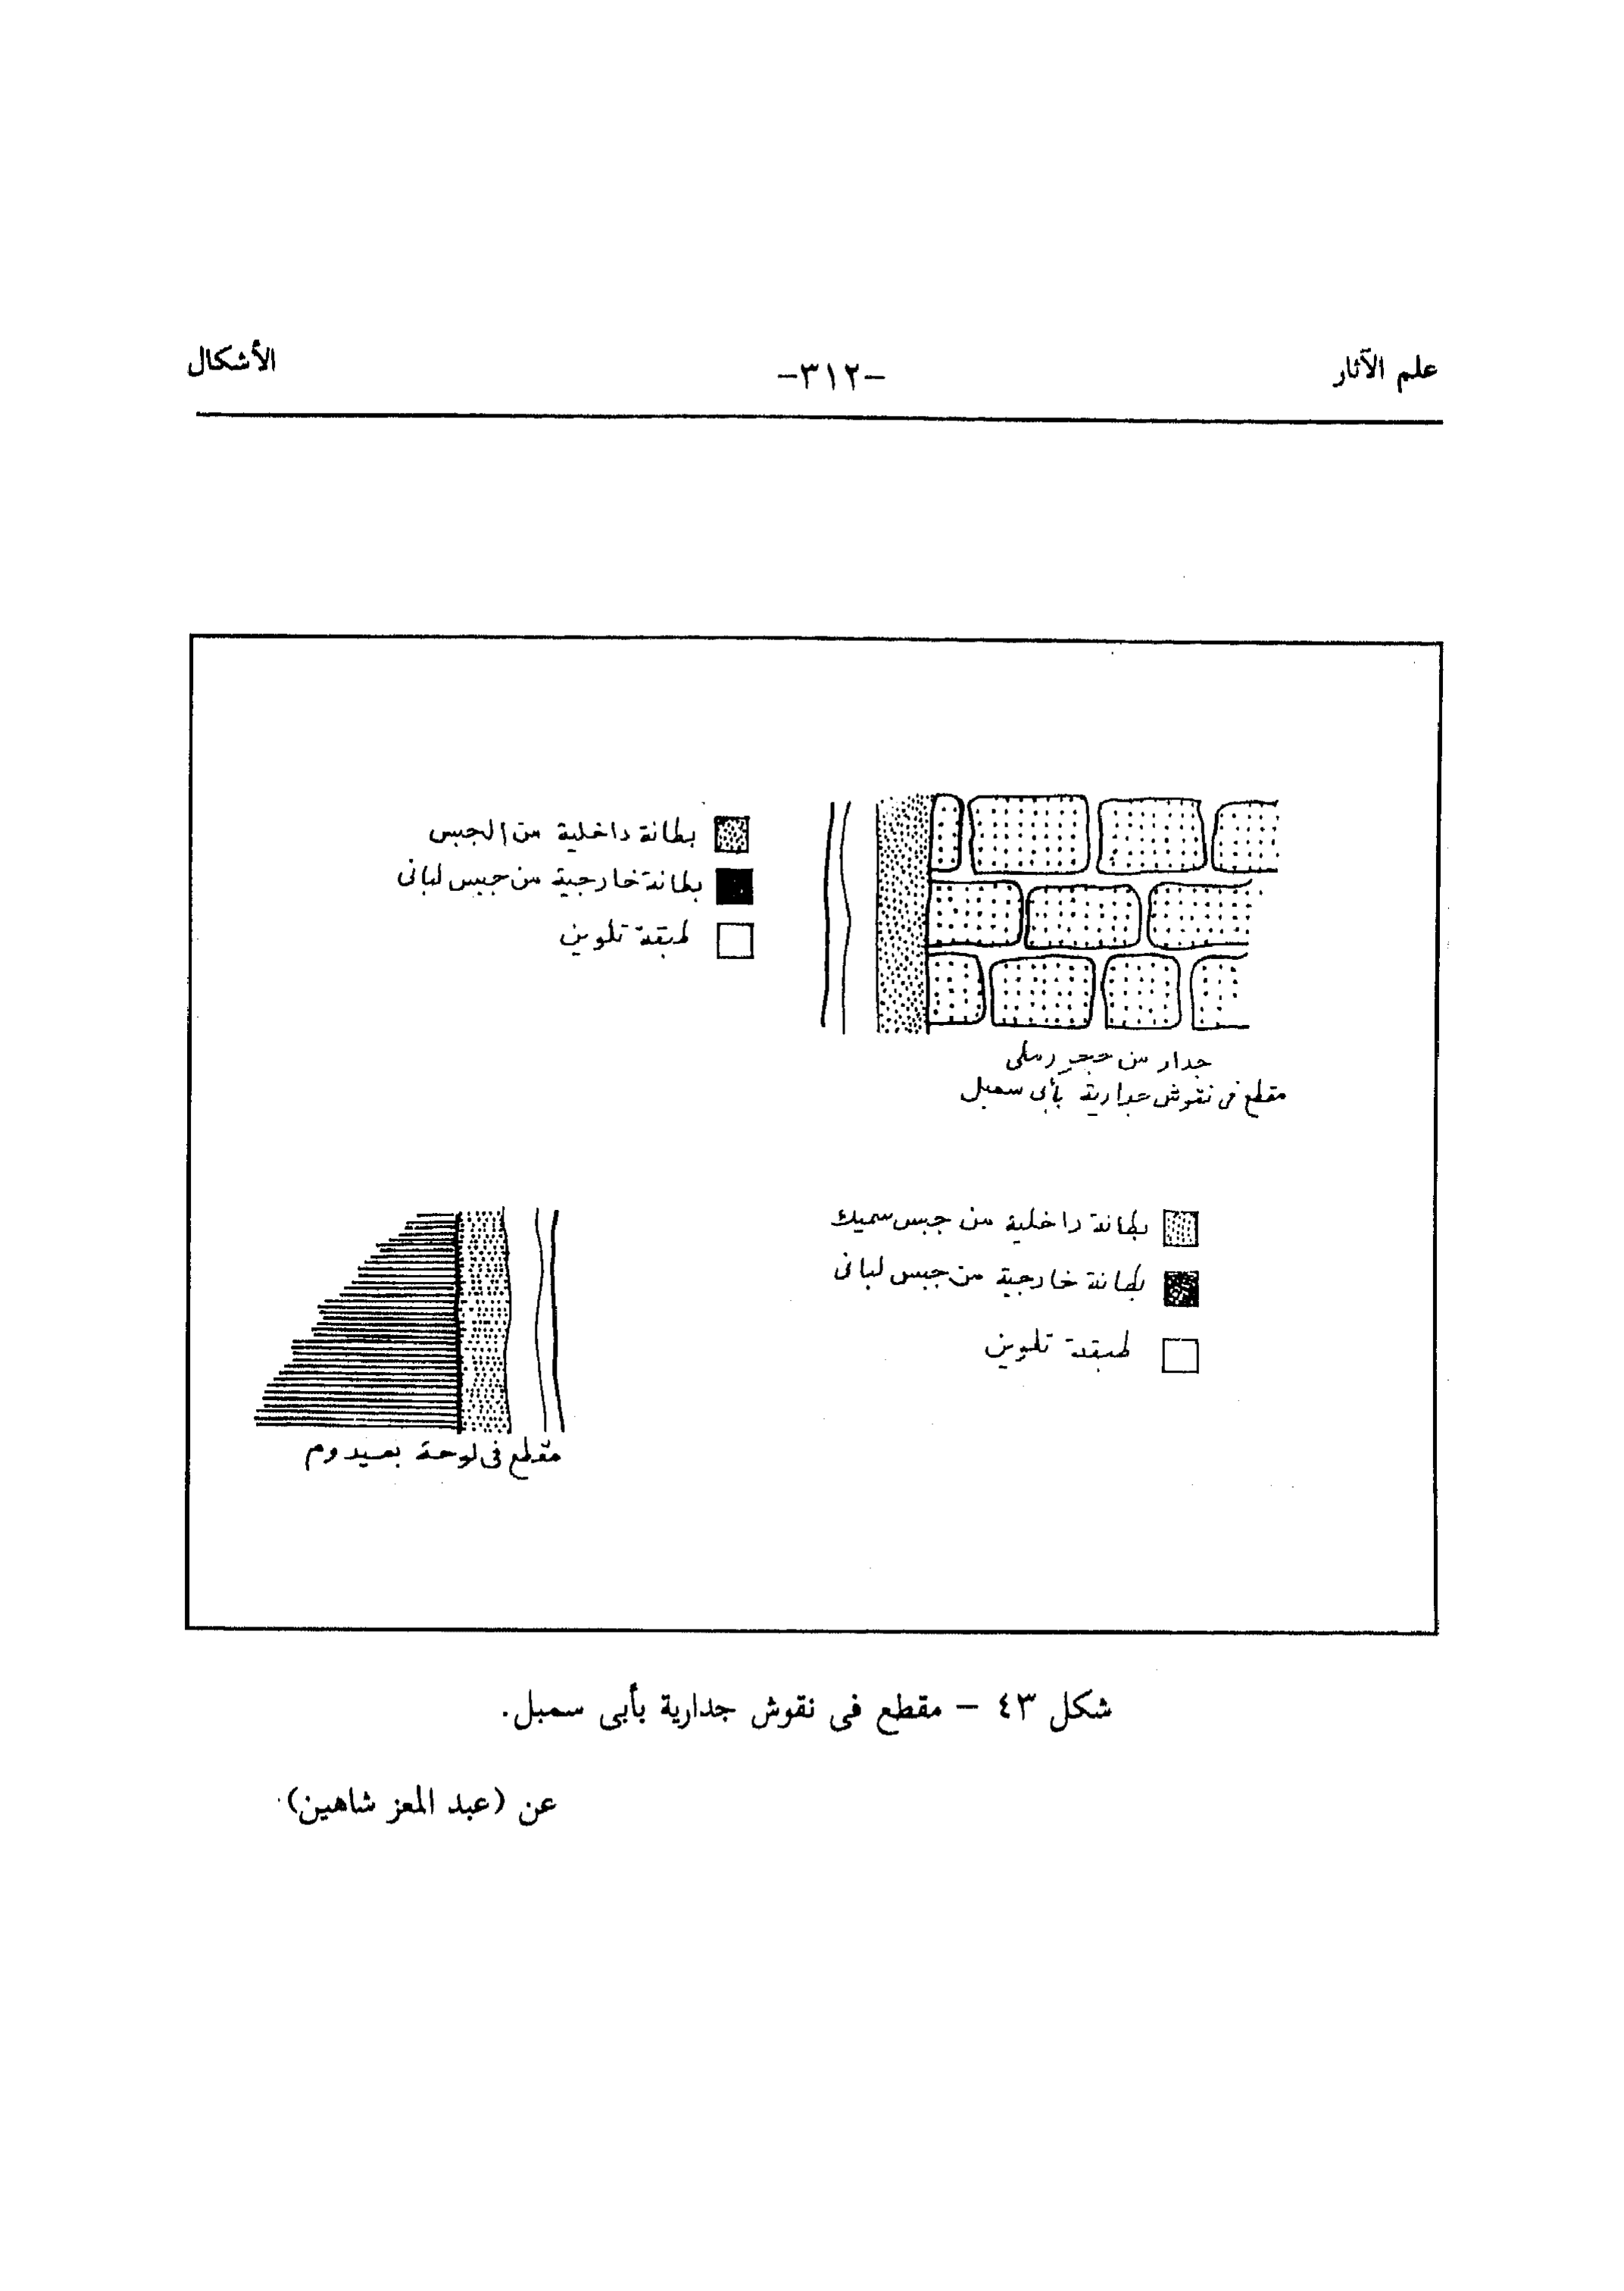 علم الآثار
-٣١٢-
الأشكال
بطانة داخلية من الجبس
بطانة خارجية من جبس لبانى
طبقة تلوين
جدار من حجر رملى
مقطع فى نقوش جدارية بأبى سمبل
بطانة داخلية من جبس سميك
بطانة خارجية من جبس لبانى
طبقة تلوين
مقطع فى لوحة بميدوم
شكل ٤٣ - مقطع فى نقوش جدارية بأبى سمبل.
عن (عبد المعز شاهين)